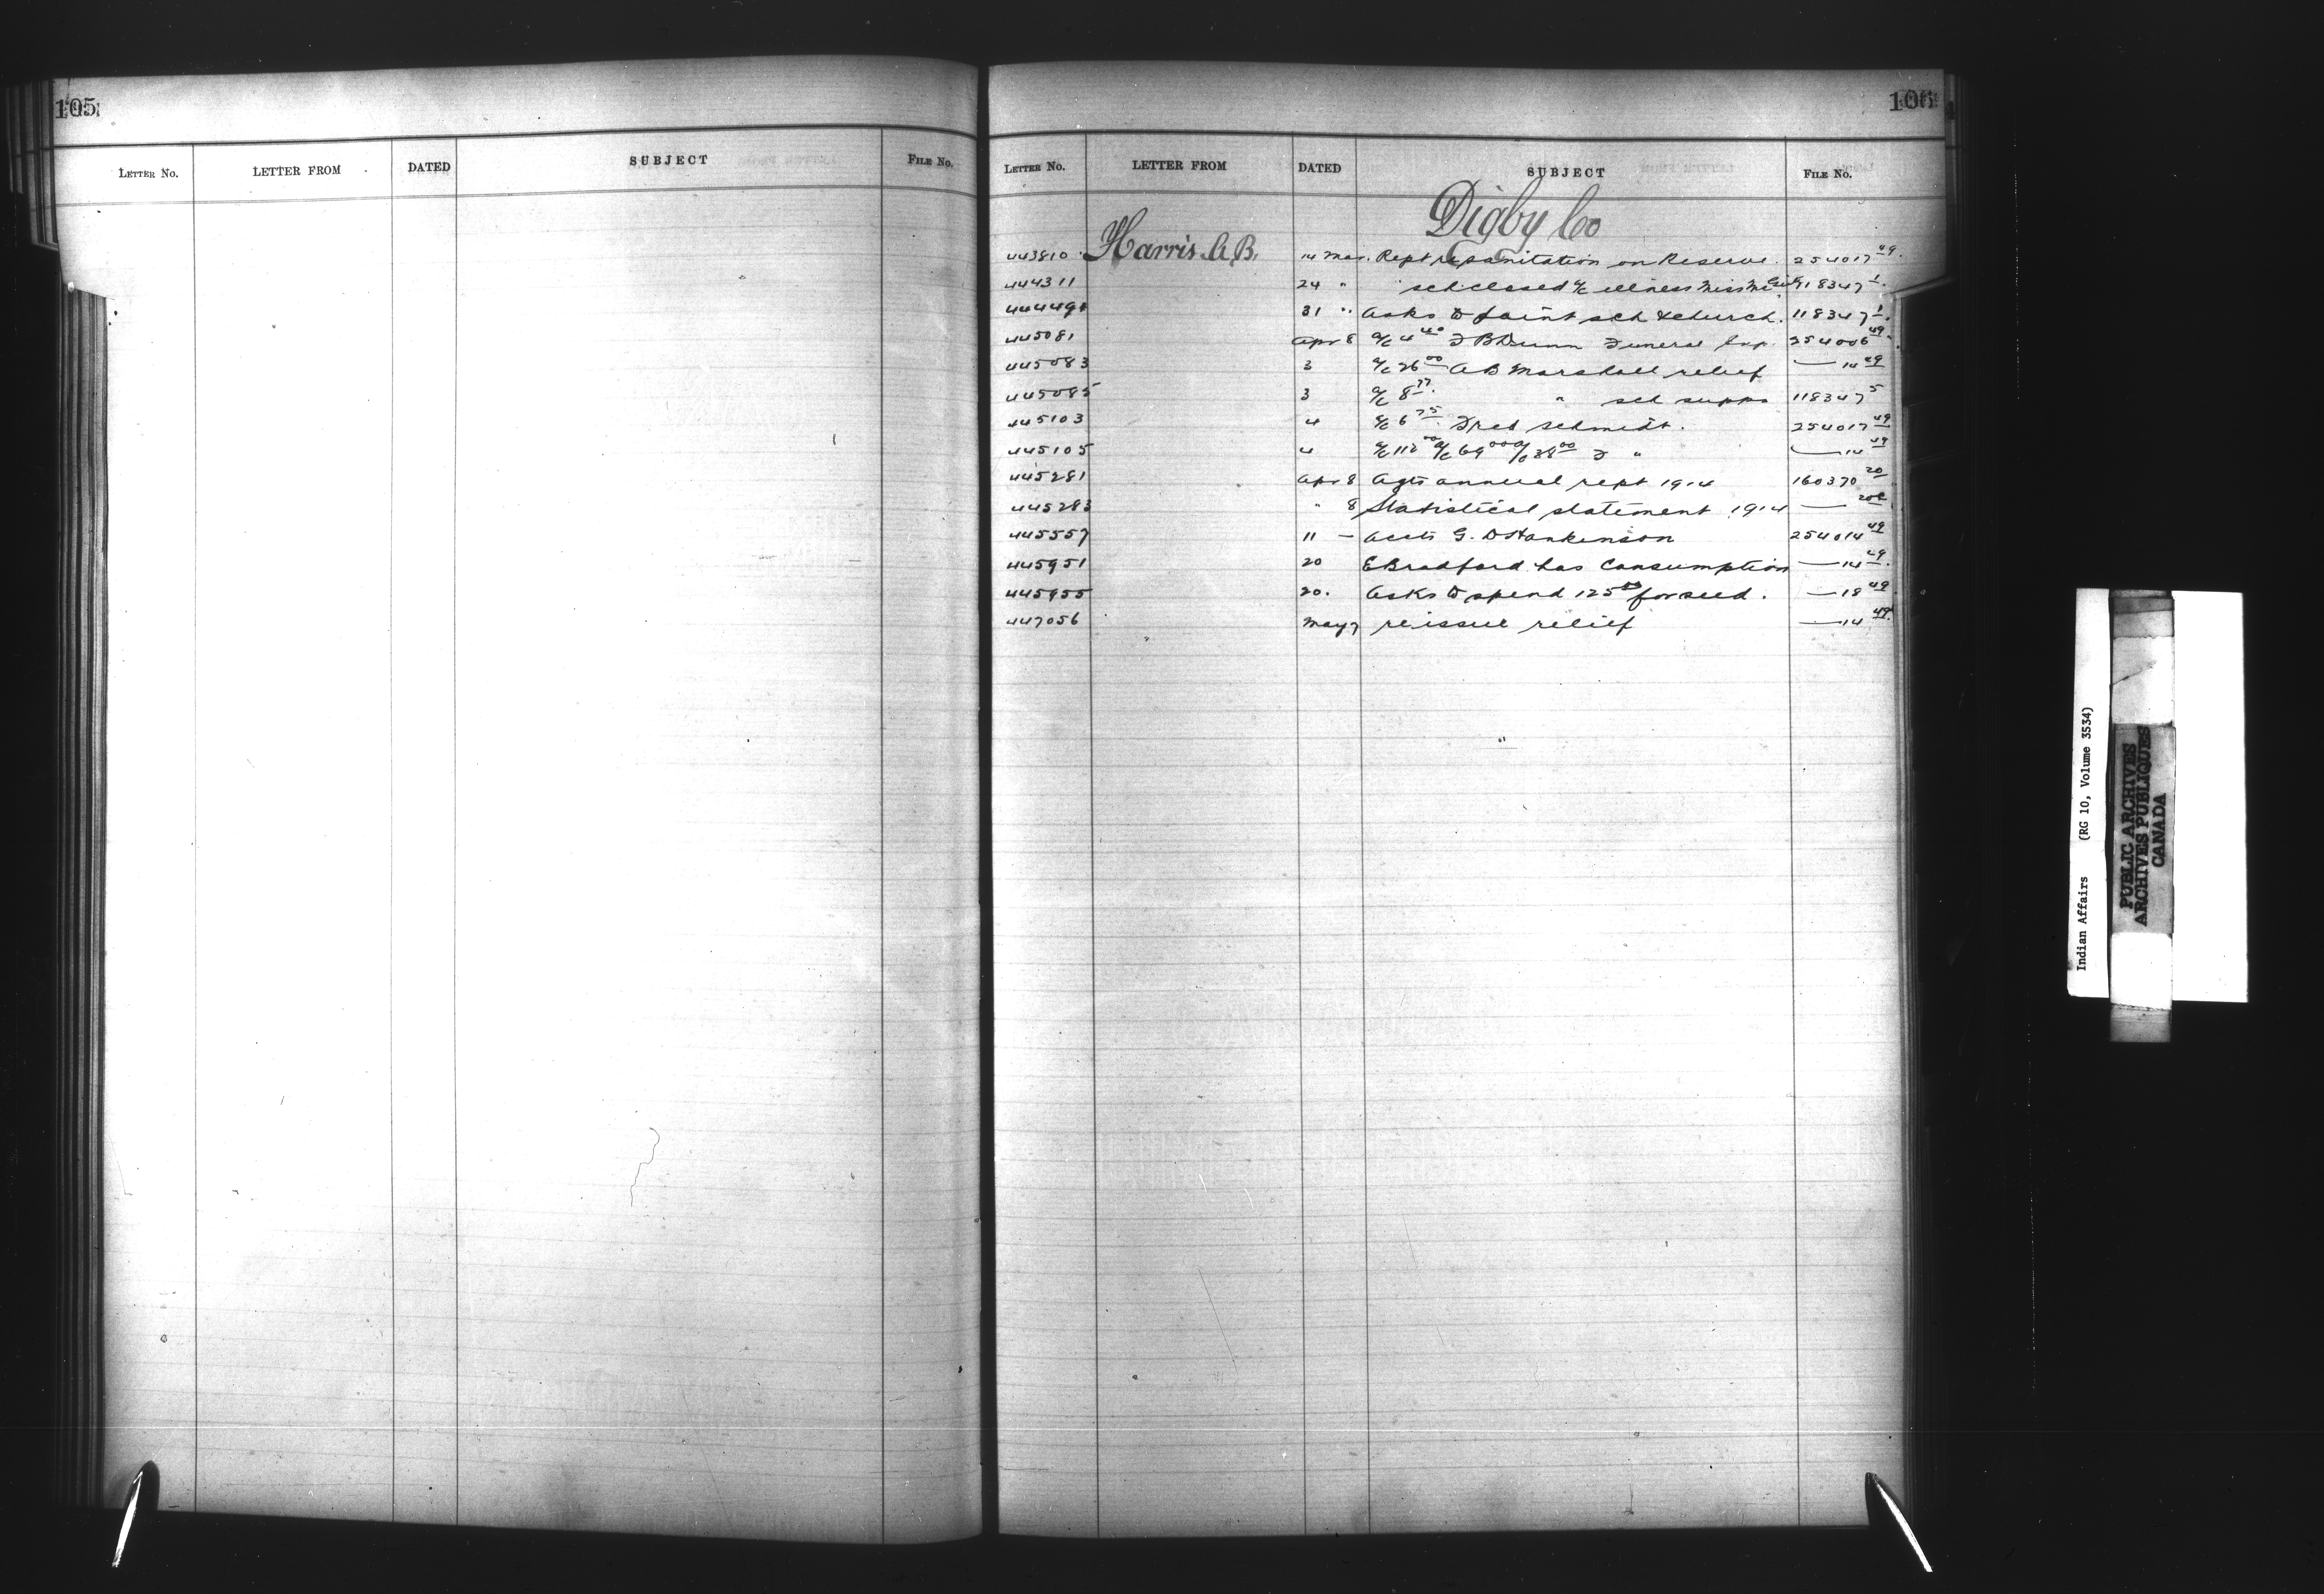 105
LETTER NO. LETTER FROM DATED SUBJECT FILE NO.
106
LETTER NO. LETTER FROM DATED SUBJECT FILE NO.
Digby Co
443810 Harris A.B. 14 Mar. Rept re sanitation on Reserve. 254017 49.
444311 24 " sch closed a/c illness Miss 118347 1.
31 " asks to paint sch & church. 118347 1.
445081 Apr 8 a/c 4 40 Dunn Funeral Exp. 254006 49.
445083 3 a/c 26 00 A B Marshall relief — 14 49
445085 3 a/c 8 77. " sch supps 118347 5
445103 4 a/c 6 75 Fred Schmidt. 254017 49
445105 4 a/c 112 00 a/c 69 00 a/c 38 00 F " — 14 49
445281 Apr 8 Agts annual rept 1914 160370 20
445283 " 8 Statistical statement 1914 —
445557 11 — accts G. D Hankinson 254014 49
445951 20 E Bradford has Consumption — 14 49.
445955 20. asks to spend 125 00 for seed. — 18 49.
447056 May 7 re issue relief — 14 49.
Indian Affairs (RG 10, Volume 3534)
PUBLIC ARCHIVES
ARCHIVES PUBLIQUES
CANADA